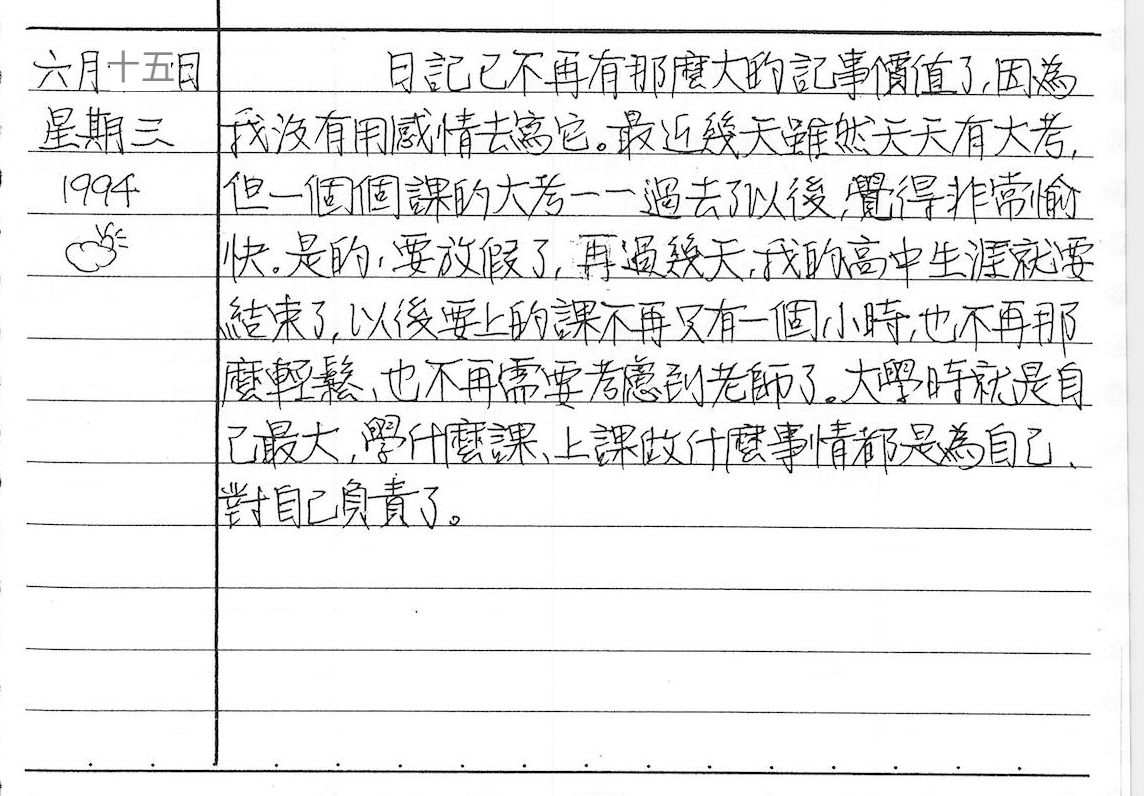 六月十五日
星期三
1994
日記已不再有那麼大的記事價值了,因為
我沒有用感情去寫它。最近幾天雖然天天有大考,
但一個個課的大考一一過去了以後,覺得非常愉
快。是的,要放假了,再過幾天,我的高中生涯就要
結束了,以後要上的課不再只有一個小時,也不再那
麼輕鬆、也不再需要考慮到老師了。大學時就是自
己最大,學什麼課、上課做什麼事情都是為自己、
對自己負責了。